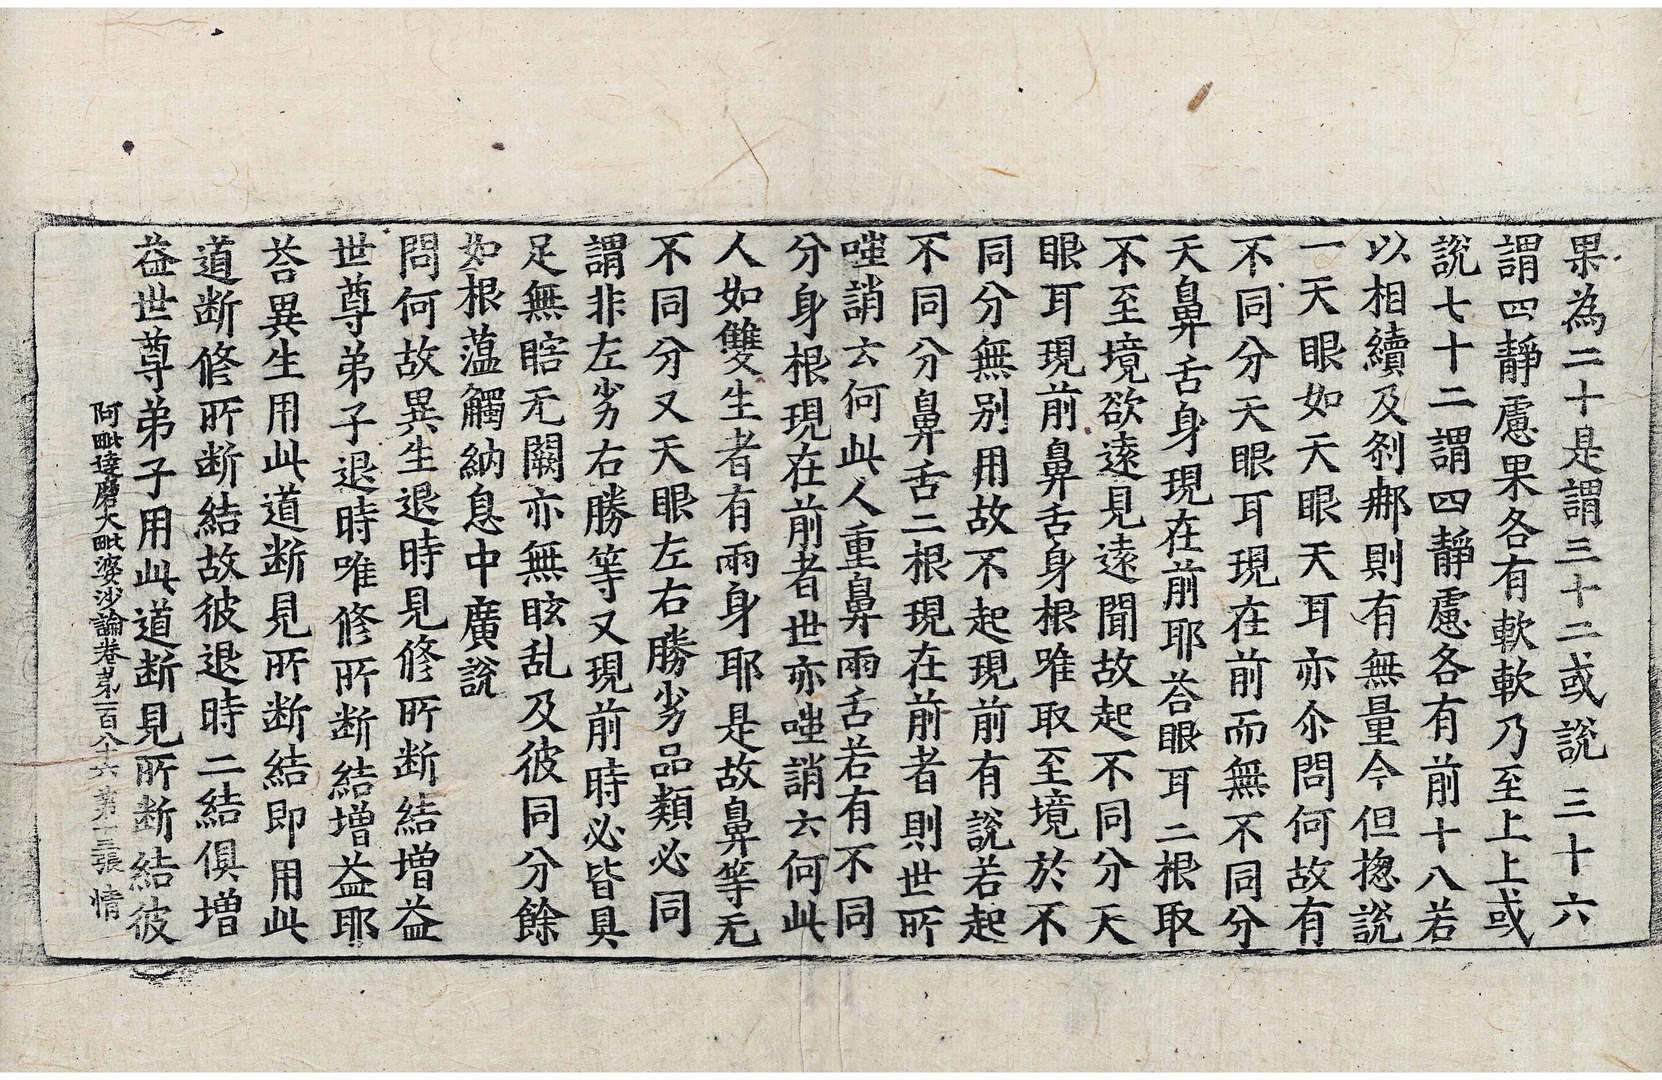 果為二十是謂三十二或說三十六
謂四靜慮果各有軟軟乃至上上或
說七十二謂四靜慮各有前十八若
以相續及剎那則有無量今但揔說
一天眼如天眼天耳亦尒問何故有
不同分天眼耳現在前而無不同分
天鼻舌身現在前耶荅眼耳二根取
不至境欲遠見遠聞故起不同分天
眼耳現前鼻舌身根唯取至境於不
同分無別用故不起現前有說若起
不同分鼻舌二根現在前者則世所
嗤誚云何此人重鼻兩舌若有不同
分身根現在前者世亦嗤誚云何此
人如雙生者有兩身耶是故鼻等无
不同分又天眼左右勝劣品類必同
謂非左劣右勝等又現前時必皆具
足無瞎无闕亦無眩乱及彼同分餘
如根蘊觸納息中廣說
問何故異生退時見修所断結增益
世尊弟子退時唯修所断結增益耶
荅異生用此道断見所断結即用此
道断修所断結故彼退時二結俱增
益世尊弟子用此道断見所断結彼
阿毗達磨大毗婆沙論卷第一百八十六 第十三張 情